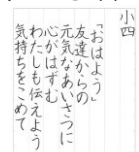 小四
「おはよう」
友達からの
元気なあいさつに
心がはずむ
わたしも伝えよう
気持ちをこめて